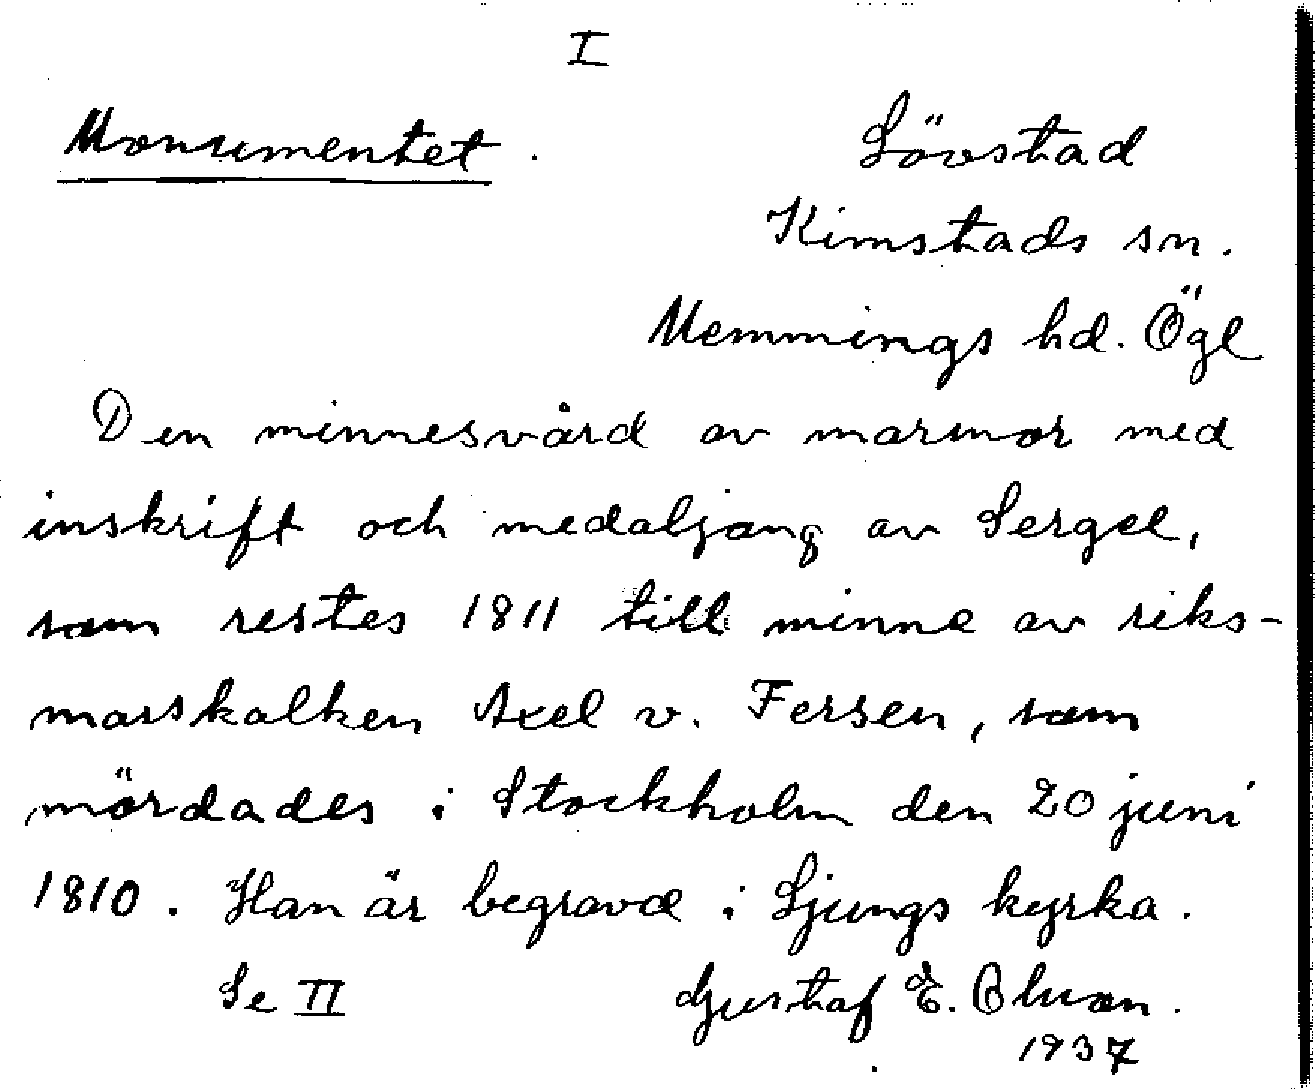 I
Monumentet.
Lövstad
Kimstads sn.
Memmings hd. Ögl
Den minnesvård av marmor med
inskrift och medaljong av Sergel,
som restes 1811 till minne av riks-
marskalken Axel v. Fersen, som
mördades i Stockholm den 20 juni
1810. Han är begravd i Ljungs kyrka.
Se II
Gustaf E.
1937